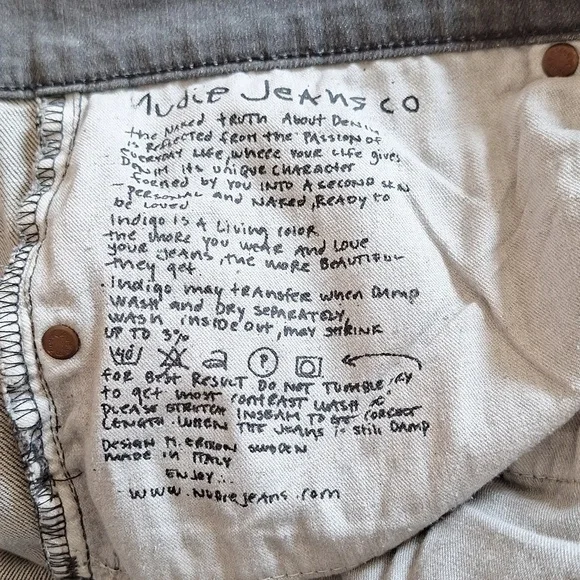 Nudie Jeans co
the Naked truth About Denim
is Reflected from the Passion of
everyday Life, where your Life gives
Denim its unique character
formed by you into a second skin
personal and naked, ready to
be loved
Indigo is a Living color
the more you wear and love
your jeans, the more beautiful
they get
indigo may transfer when damp
wash and dry separately,
wash inside out, may shrink
up to 3%
40 P
for best result do not tumble dry
to get most contrast wash
please stretch inseam to get correct
length when the jeans is still damp
Design M. Erixon Sweden
made in Italy
enjoy..
www.nudiejeans.com